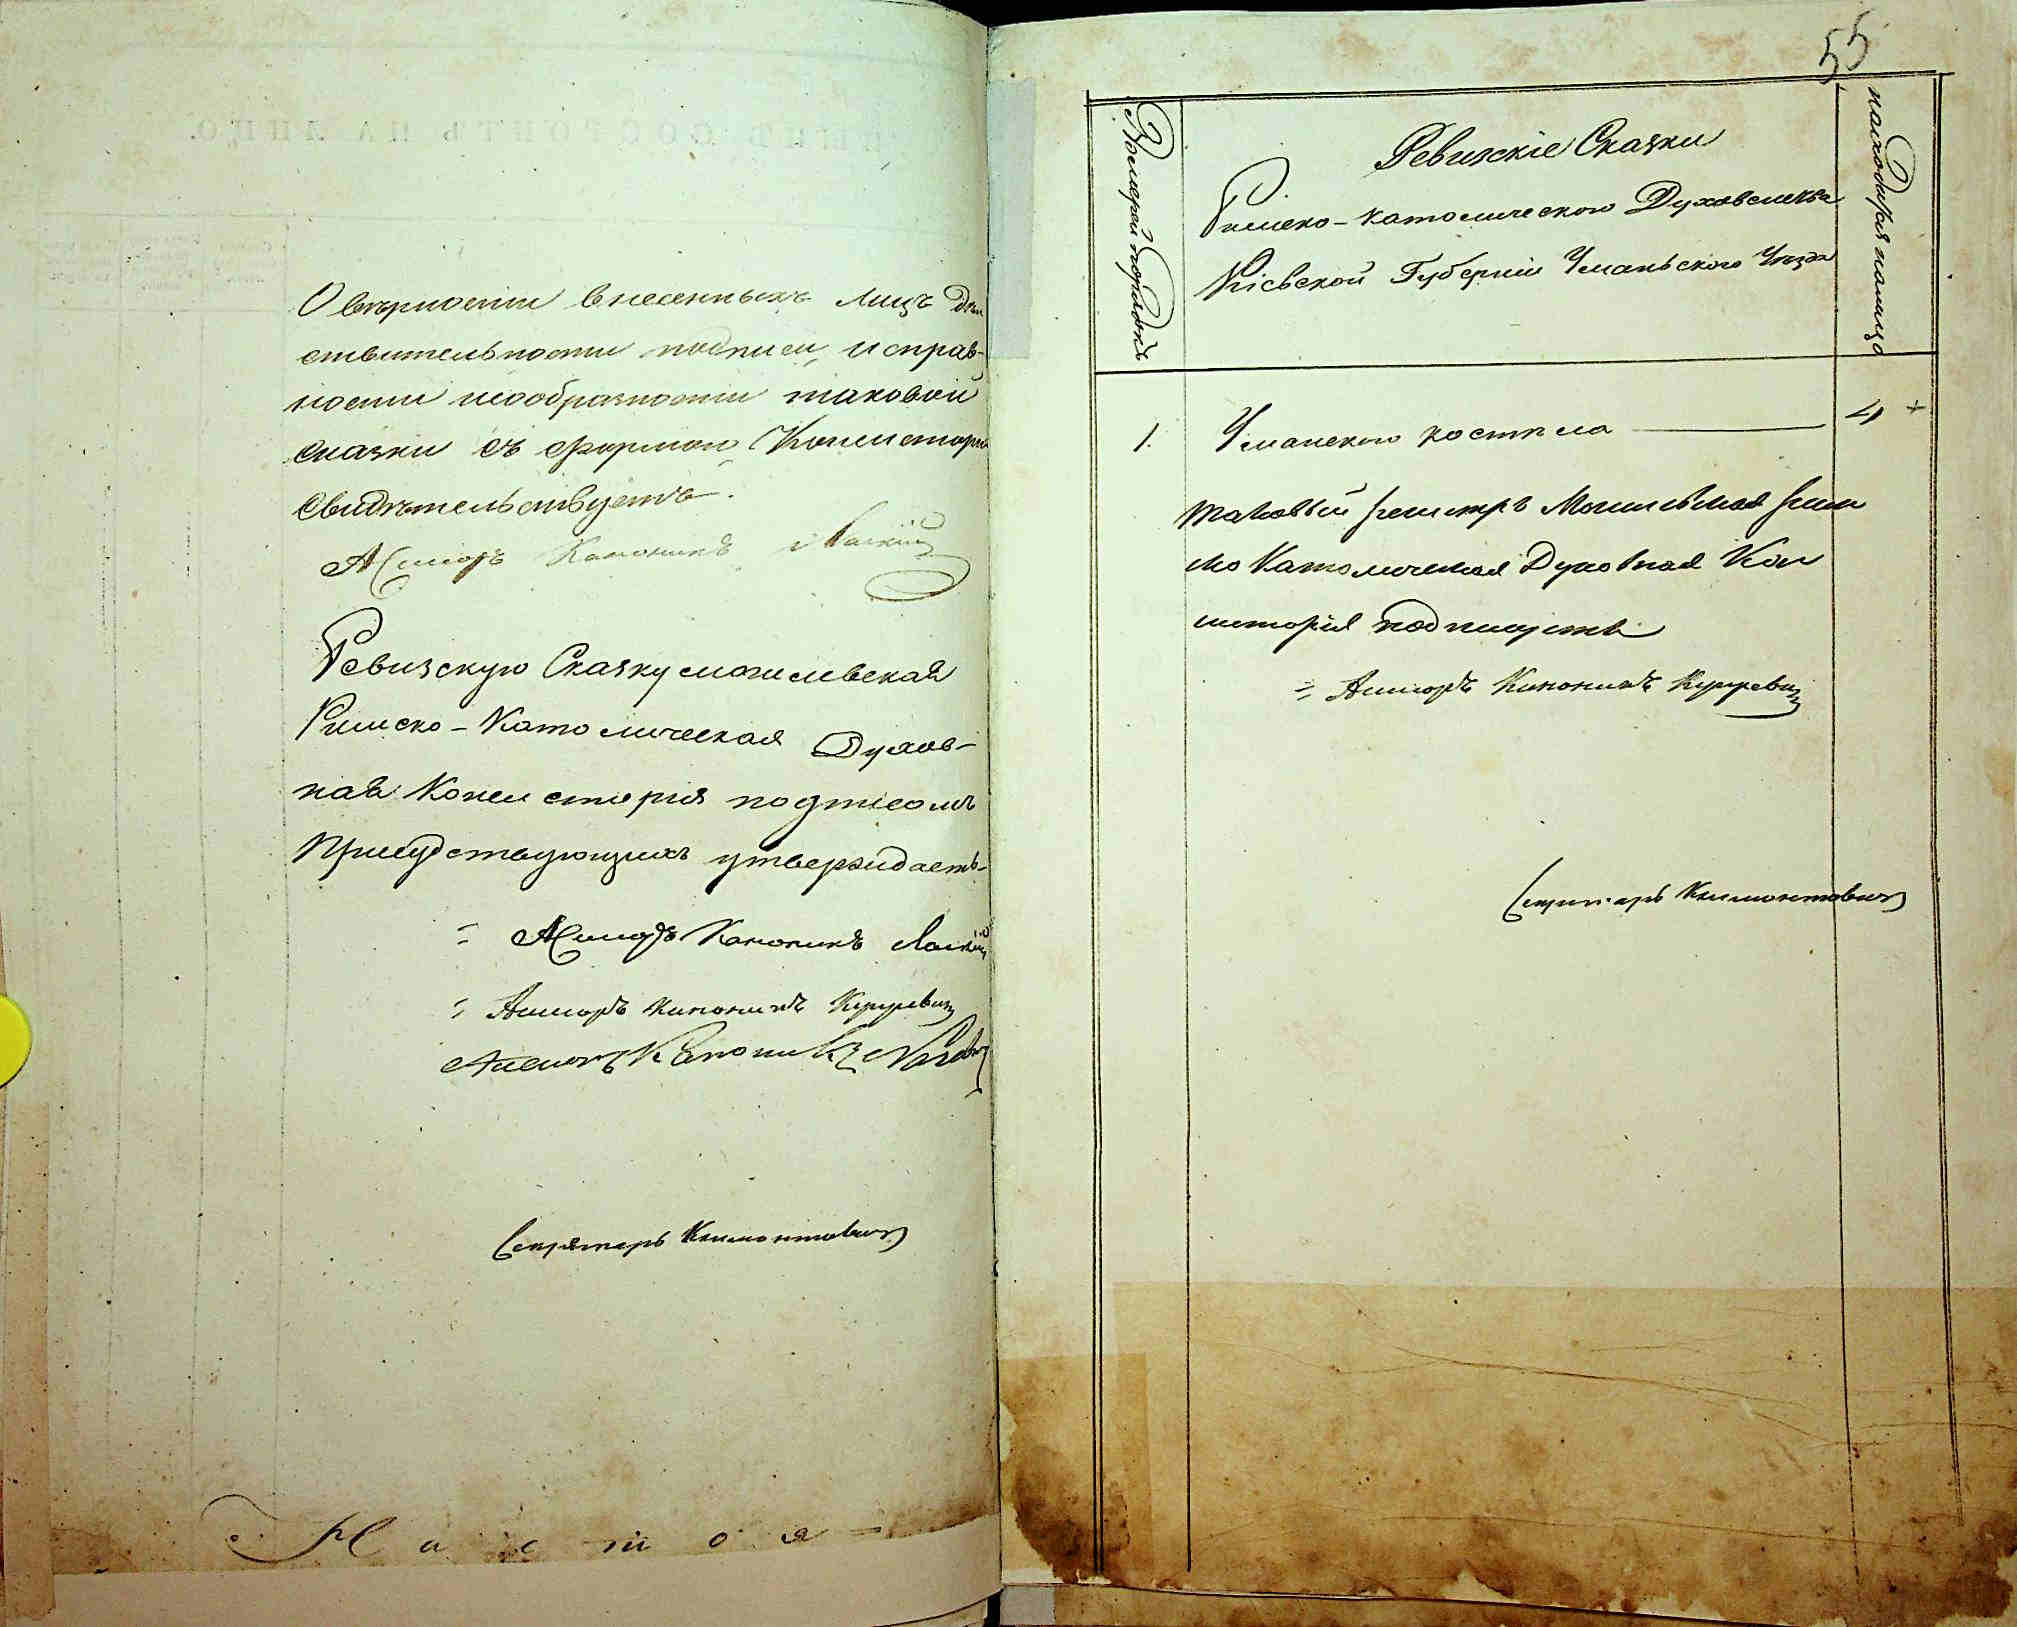 О вѣрности внесенныхъ лицъ Дѣй
ствительности подписи, исправ-
ности исообразности таковой
сказки съ формою Консисторія
Свидѣтельствуетъ.
Асессоръ Каноникъ
Ревизскую Сказку могилевская
Римско-Католическая Духов-
ная Консисторія подписомъ
Присудствующихъ утверждаетъ
= Асессоръ Каноникъ
= Асессоръ Каноникъ
Асессоръ Каноникъ
Секретарь Климонтовичъ
Н а с т о я =
55
Нумерація порядкѣ
Ревизскіе Сказки
Римско-католического Духовенства
Кіевской Губерніи Уманьского Уѣзда
находится налицо
1. Уманского костела 4 +
таковый регистръ Могилевская Рим
ско Католическая Духовная Кон
систорія подписуетъ
= Асессоръ Каноникъ
Секретарь Климонтовичъ